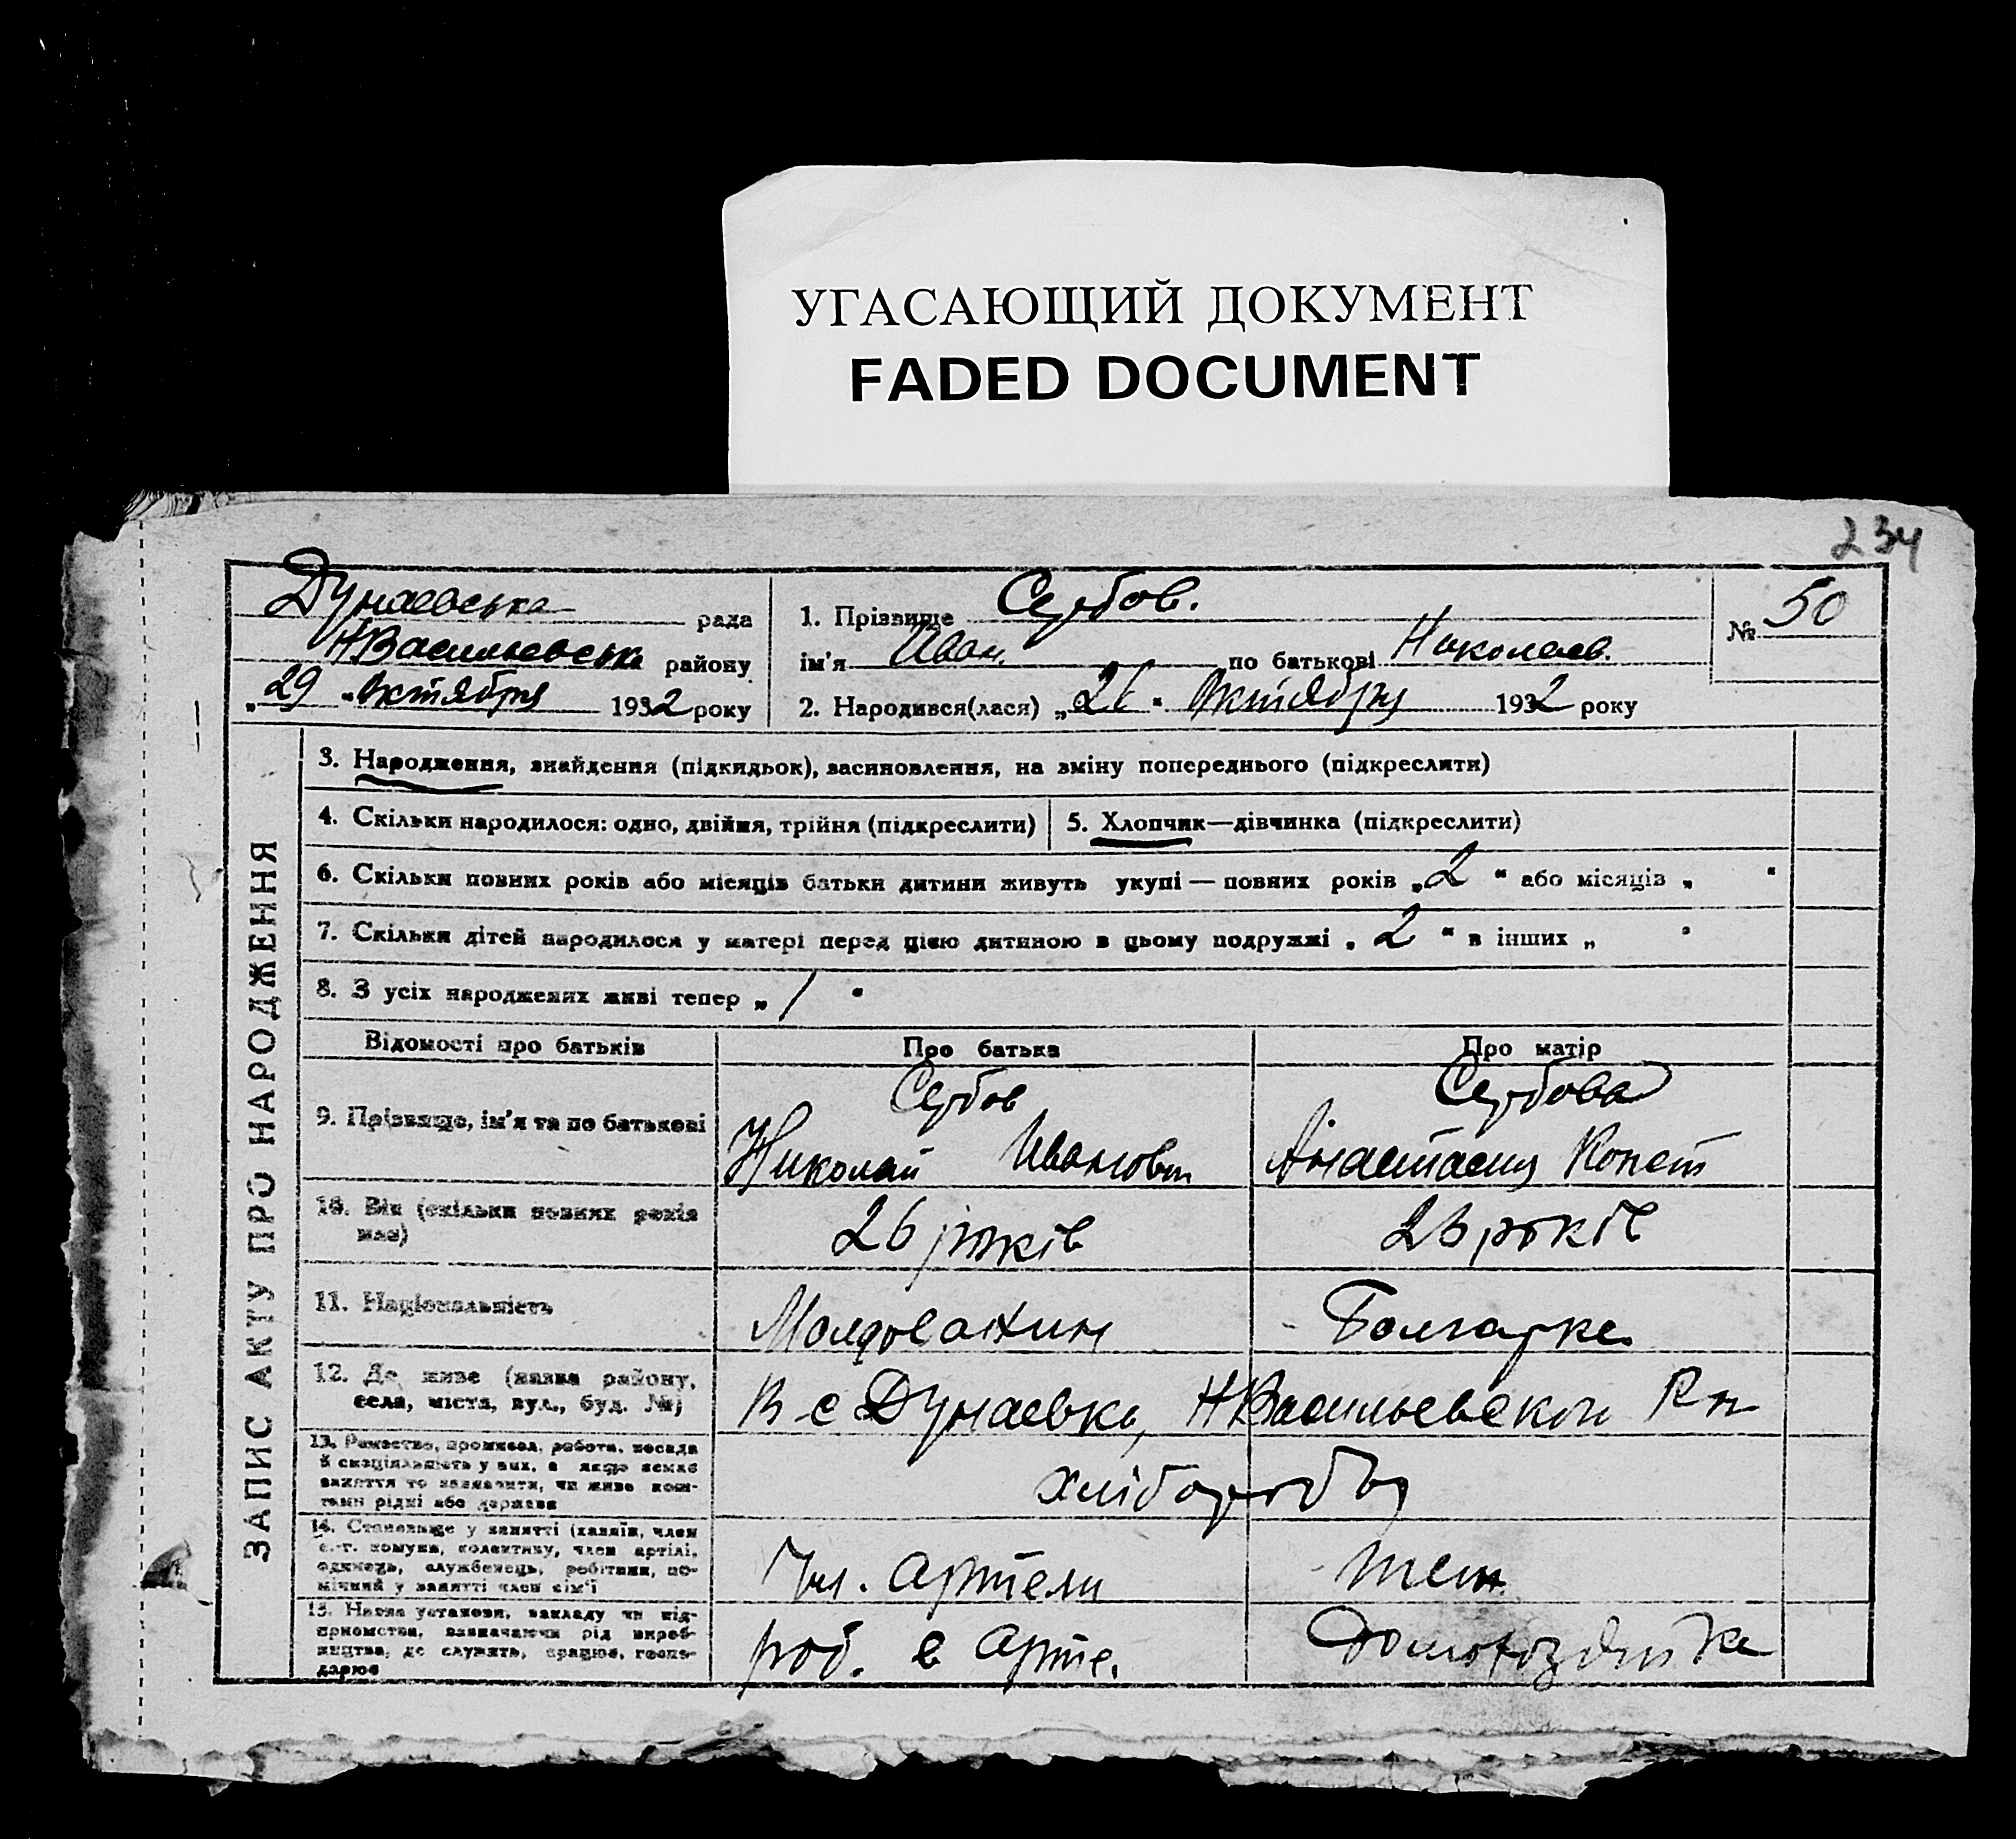 УГАСАЮЩИЙ ДОКУМЕНТ
FADED DOCUMENT
234
Дунаевська рада
НВасильевська району
„29 " октября 1932 року
1. Прізвище Сербов.
ім'я Иван. по батькові Николаев.
2. Народився(лася) „26 " Октября 1932 року
№ 50
ЗАПИС АКТУ ПРО НАРОДЖЕННЯ
3. Народження, знайдення (підкидьок), засиновлення, на зміну попереднього (підкреслити)
4. Скільки народилося: одно, двійня, трійня (підкреслити)
5. Хлопчик—дівчинка (підкреслити)
6. Скільки повних років або місяців батьки дитини живуть укупі — повних років „2 " або місяців „ "
7. Скільки дітей народилося у матері перед цією дитиною в цьому подружжі „ 2 " в інших „ "
8. З усіх народжених живі тепер „ 1 "
Відомості про батьків Про батька Про матір
9. Прізвище, ім'я та по батькові
Сербов
Николай Иванович
Сербова
Анастасия Конст
10. Вік (скільки повних років
має)
26 років
23 років
11. Національність
Молдованин
Болгарка
12. Де живе (назва району,
села, міста, вул., буд. №)
В с Дунаевка, НВасильевского Рн
13. Ремество, промисел, робота, посада
й спеціяльність у них, а якщо немає
заняття то зазначити, чи живе кош-
тами рідні або держави
хлібороби
14. Становище у занятті (хазяїн, член
с.-г. комуни, колективу, член артілі,
одинець, службовець, робітник, по-
мічний у занятті член сім'ї
Чл. артели
15. Назва установи, закладу чи під-
приємства, зазначаючи рід вироб-
ництва, де служить, працює, госпо-
дарює
роб. в арте.